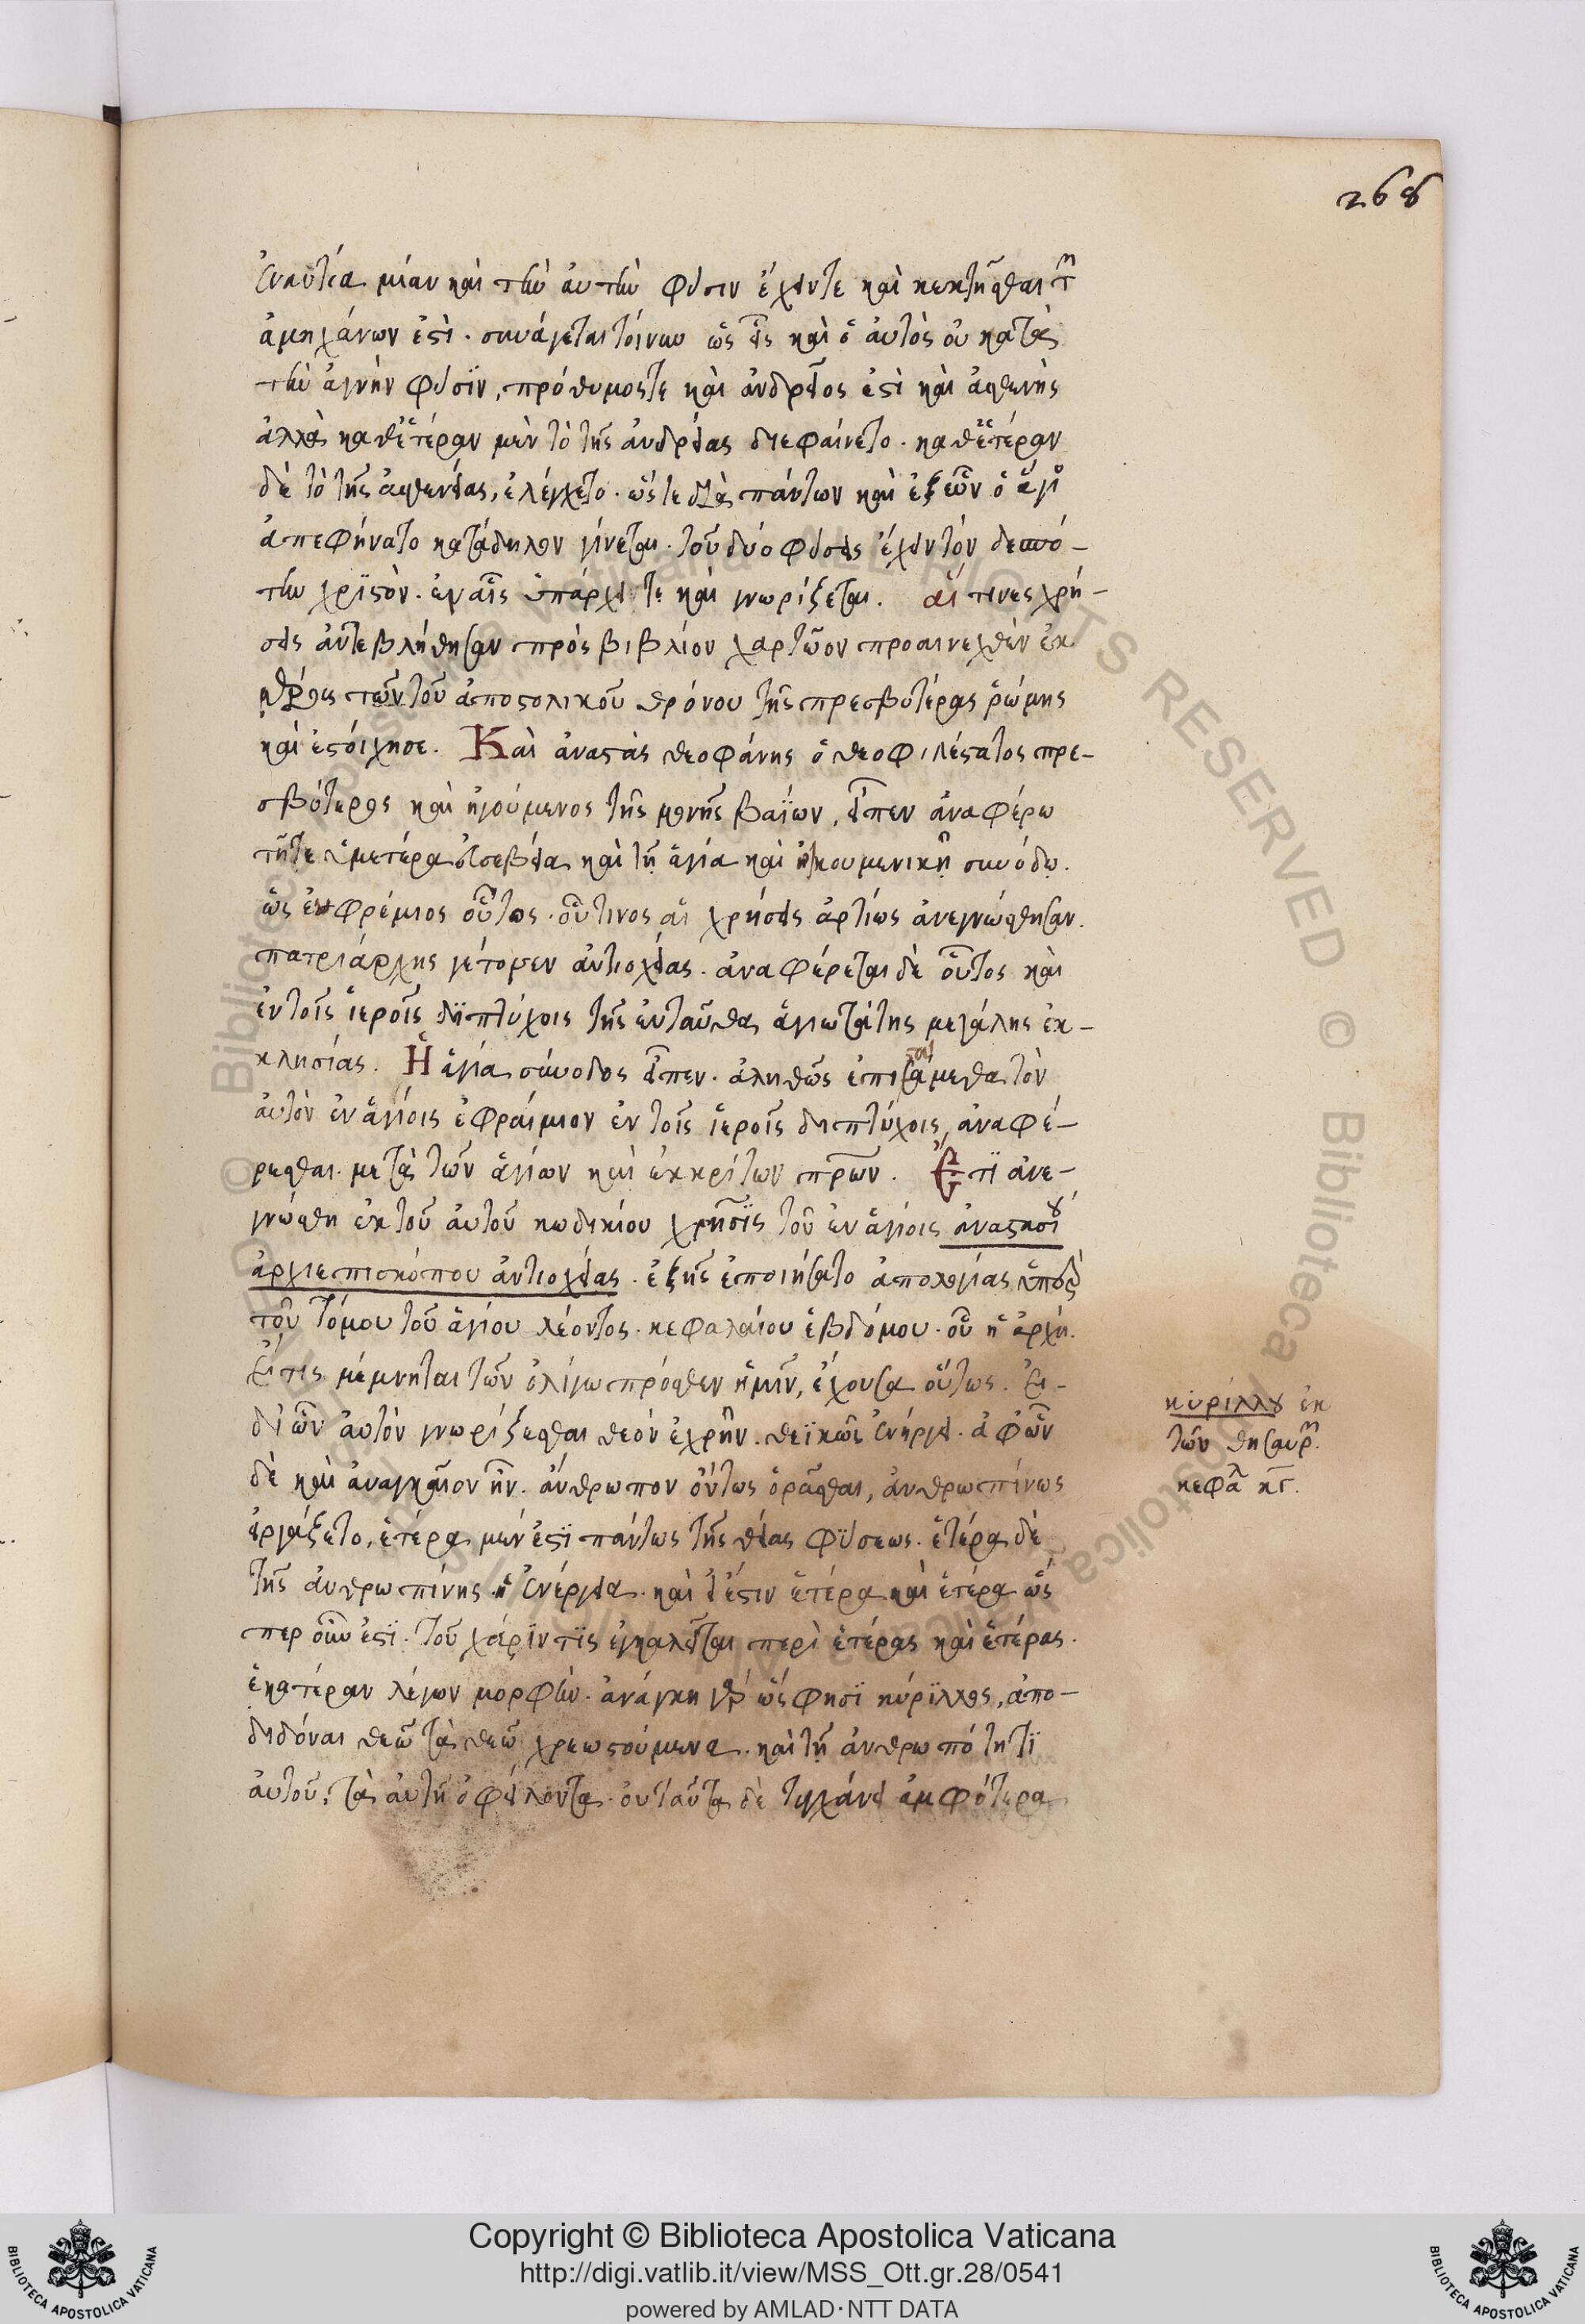 268
ἐναντία μίαν καὶ τὴν αὐτὴν φύσιν ἔχειν τε καὶ κεκτῆσθαι τῶν
ἀμηχάνων ἐστὶ. συνάγεται τοίνυν ὡς εἷς καὶ ὁ αὐτὸς οὐ κατὰ
τὴν ἁγνὴν φύσϊν, πρόθυμός τε καὶ ἀνδρεῖος ἐστὶ καὶ ἀσθενὴς
ἀλλὰ καθ' ἑτέραν μὲν τὸ τῆς ἀνδρείας διεφαίνετο. καθ' ἑτέραν
δὲ τὸ τῆς ἀσθενείας, ἐλέγχετο. ὥστε διὰ πάντων καὶ ἐξ ὧν ὁ ἅγι
ἀπεφήνατο κατάδηλον γίνεται. τοῦ δύο φύσεις ἔχειν τὸν δεσπό-
την χρϊστὸν. ἐν αἷς ὑπάρχει τε καὶ γνωρίζεται. αἵ τινες χρή-
σεις ἀντεβλήθησαν πρὸς βιβλίον χαρτῶον προαινεχθὲν ἐκ
μέρους τῶν τοῦ ἀποστολικοῦ θρόνου τῆς πρεσβυτέρας ῥώμης
καὶ ἐστοίχησε. Καὶ ἀναστὰς θεοφάνης ὁ θεοφιλέστατος πρε-
σβύτερος καὶ ἡγούμενος τῆς μονῆς βαΐων, εἶπεν ἀναφέρω
τῇτε ὑμετέρα εὐσεβεία καὶ τῇ ἁγία καὶ οἰκουμενικῇ συνόδῳ.
ὡς ἐφρέμιος οὗτος. οὗτινος αἱ χρήσεις ἀρτίως ἀνεγνώσθησαν.
πατριάρχης γέγονεν ἀντιοχείας. ἀναφέρεται δὲ οὗτος καὶ
ἐν τοῖς ἱεροῖς δϊπτύχοις τῆς ἐνταῦθα ἁγιωτάτης μεγάλης ἐκ-
κλησίας. Ἡ ἁγία σύνοδος εἶπεν. ἀληθῶς ἐπιστάμεθα τὸν
αὐτὸν ἐν ἁγίοις ἐφραίμιον ἐν τοῖς ἱεροῖς διπτύχοις, ἀναφέ-
ρεσθαι. μετὰ τῶν ἁγίων καὶ ἐκκρίτων πρων. Ἔτϊ ἀνε-
γνώσθη ἐκ τοῦ αὐτοῦ κωδικίου χρῆσϊς τοῦ ἐν ἁγίοις ἀναστασίου
ἀρχιεπισκόπου ἀντιοχείας. ἐξ ἧς ἐποιήσατο ἀπολογίας ὑπὲρ
τοῦ τόμου τοῦ ἁγίου λέοντος. κεφαλαίου ἑβδόμου. οὗ ἡ ἀρχὴ.
Εἴ τις μέμνηται τῶν ὀλίγω πρόσθεν ἡμῖν, ἔχουσα οὕτως. Εἰ-
δι' ὧν αὐτὸν γνωρίζεσθαι θεὸν ἐχρῆν. θεϊκῶς ἐνήργει. ἀφ' ὧν
δὲ καὶ ἀναγκαῖον ἦν. ἄνθρωπον ὄντως ὁρᾶσθαι, ἀνθρωπίνως
εἰργάζετο, ἑτέρα μὲν ἐστϊ πάντως τῆς θείας φϋσεως. ἑτέρα δὲ
τῆς ἀνθρωπίνης ἡ ἐνέργεια. καὶ εἰ ἔστιν ἑτέρα καὶ ἑτέρα ὥς
περ οὖν ἐστϊ. τοῦ χάρϊν τϊς ἐγκαλεῖται περὶ ἑτέρας καὶ ἑτέρας.
ἑκατέραν λέγων μορφὴν. ἀνάγκη γὰρ ὥς φησϊ κύρϊλλος, ἀπο-
διδόναι θεῶ τὰ θεῶ χρεωστούμενα. καὶ τῇ ἀνθρωπότητϊ
αὐτοῦ, τὰ αὐτῇ ὀφείλοντα. οὐ ταῦτα δὲ τυγχάνει ἀμφότερα
κϋρίλλου ἐκ
τῶν θησαυρῶν.
κεφαλ κγ.
Copyright © Biblioteca Apostolica Vaticana
http://digi.vatlib.it/view/MSS_Ott.gr.28/0541
powered by AMLAD·NTT DATA